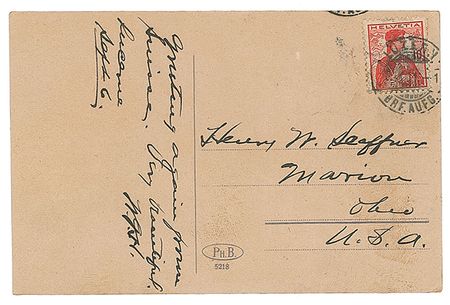 Greetings again from
Suisse. Very beautiful.
Lucerne
Sept 6.
W.G.H.
HELVETIA
BRF. AUFG.
Henry W. Seffner
Marion
Ohio
U.S.A.
PH.B.
5218